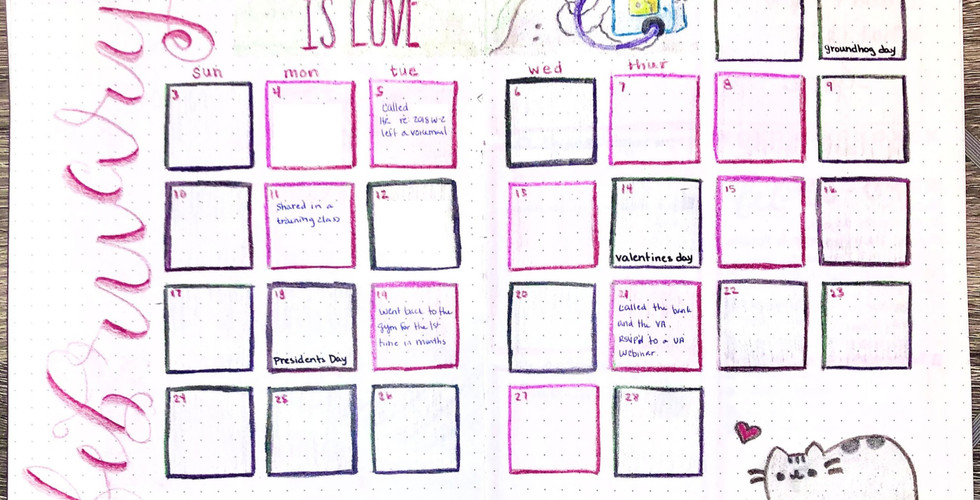 february
IS LOVE
groundhog day
sun mon tue wed thur
3 4 5 6 7 8 9
Called
HR re: 2018 W-2
left a voicemail
10 11 12 13 14 15 16
Shared in a
training class
valentines day
17 18 19 20 21 22 23
Presidents Day
Went back to the
gym for the 1st
time in months
Called the bank
and the VA.
RSVP'd to a VA
Webinar.
24 25 26 27 28